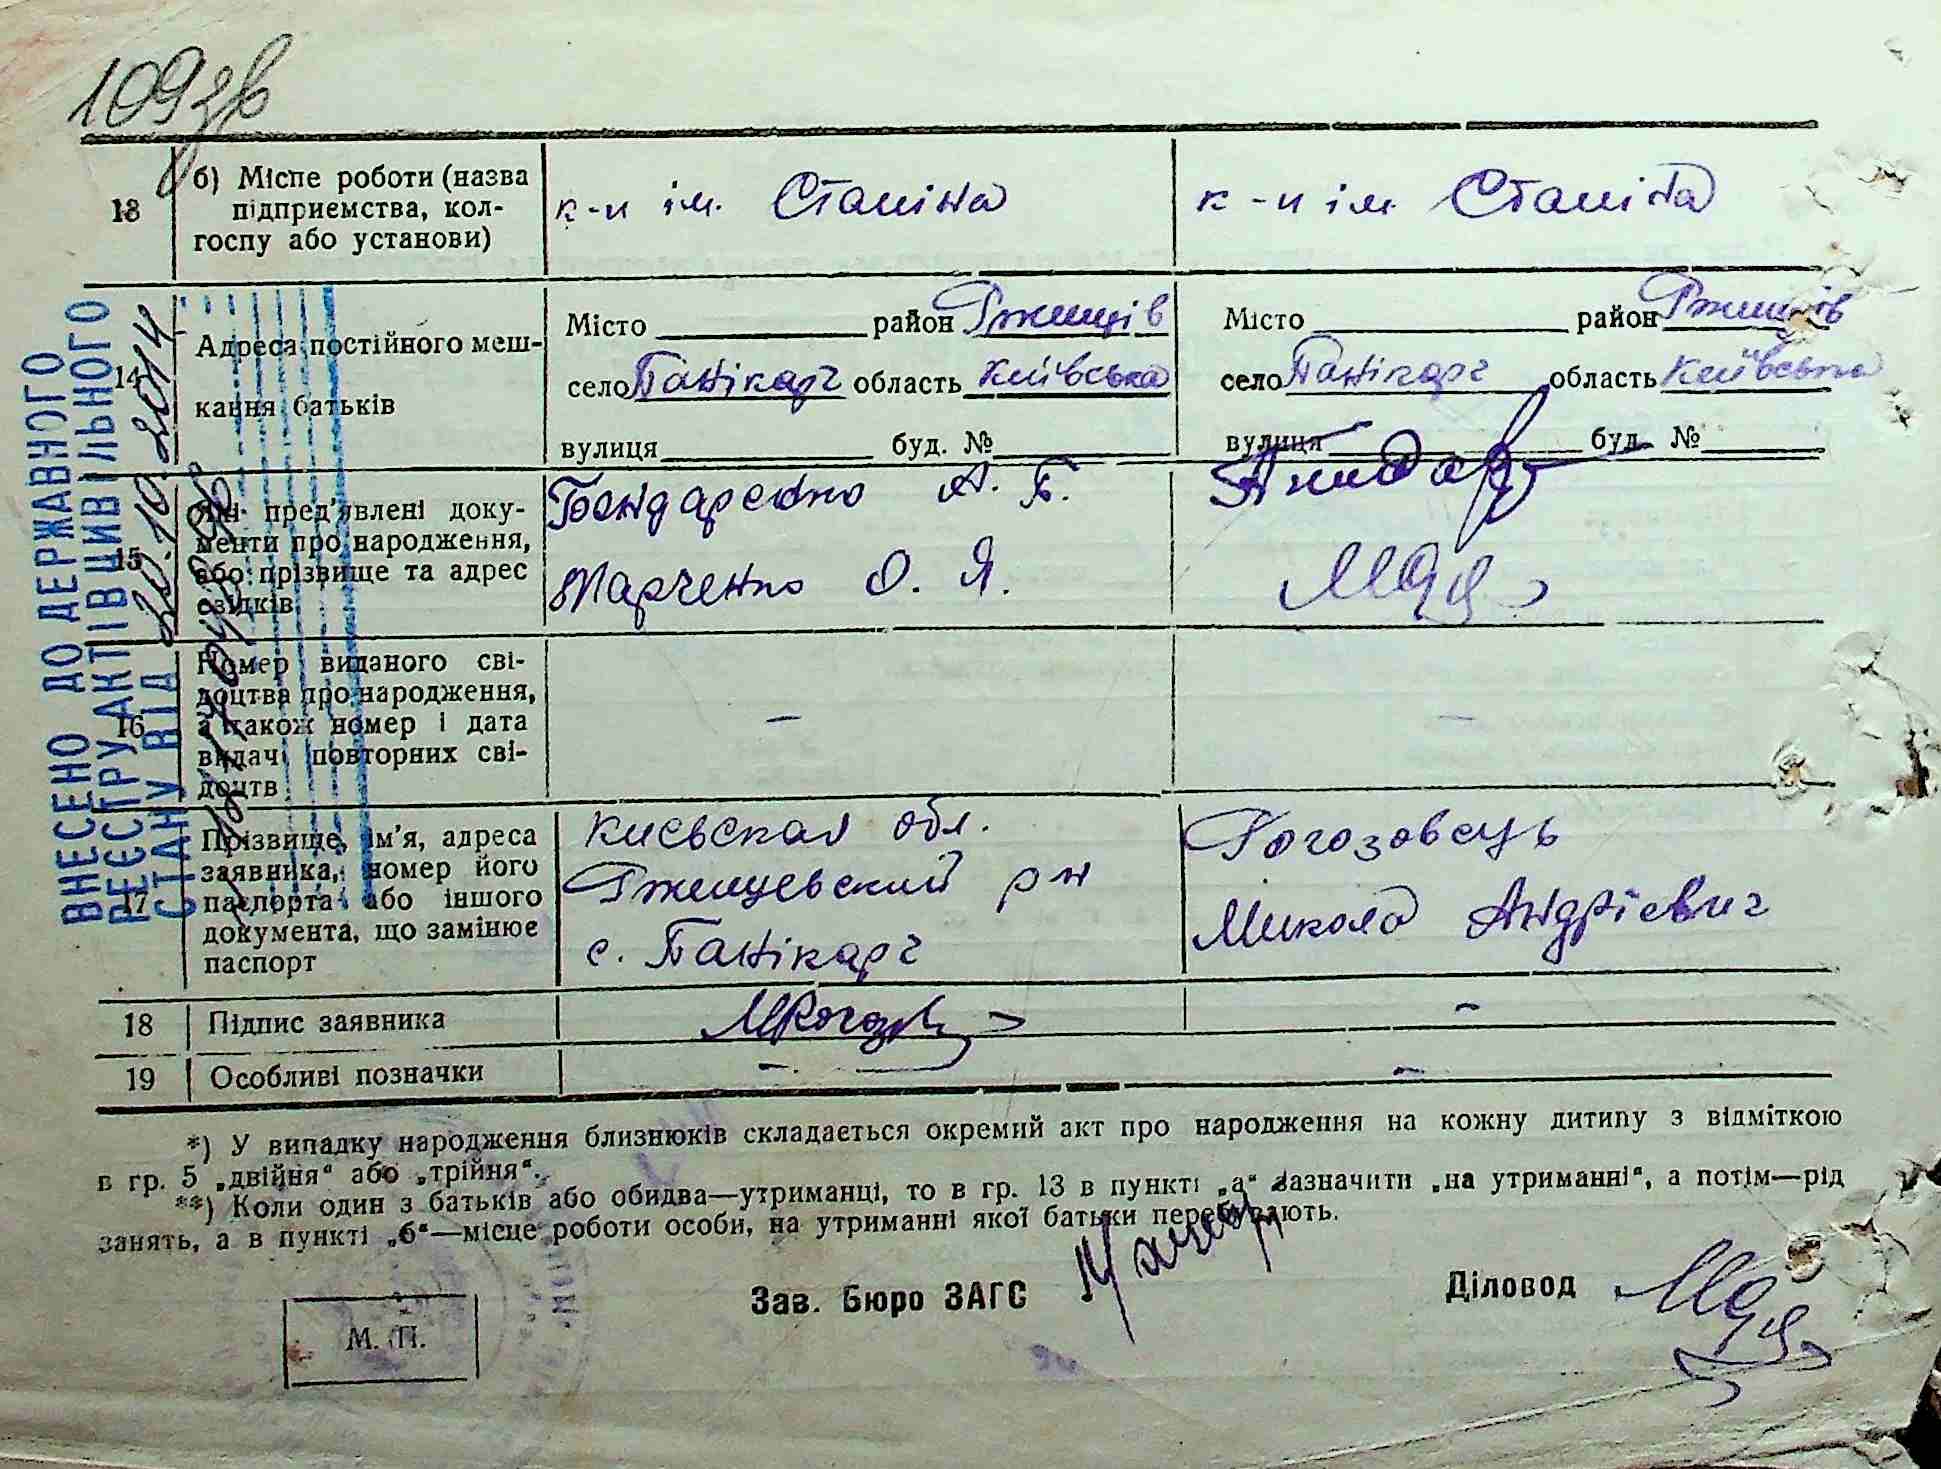 109зв
13 б) Місце роботи (назва підприємства, колгоспу або установи) к-п ім. Сталіна к-п ім. Сталіна
14 Адреса постійного мешкання батьків
Місто район Ржищів Місто район Ржищів
село Панікарч область Київська село Панікарч область Київська
вулиця буд. № вулиця буд. №
15 Які пред'явлені документи про народження, або прізвище та адрес свідків
Бондаренко А. Б.
Марченко О. Я.
16 Номер виданого свідоцтва про народження, а також номер і дата видачі повторних свідоцтв – –
17 Прізвище, ім'я, адреса заявника, номер його паспорта або іншого документа, що замінює паспорт
Киевская обл. Рогозовець
Ржищевский р-н Микола Андрієвич
с. Панікарч
18 Підпис заявника –
19 Особливі позначки – –
*) У випадку народження близнюків складається окремий акт про народження на кожну дитину з відміткою
в гр. 5 „двійня“ або „трійня“.
**) Коли один з батьків або обидва—утриманці, то в гр. 13 в пункті „а“ зазначити „на утриманні“, а потім—рід
занять, а в пункті „б“—місце роботи особи, на утриманні якої батьки перебувають.
Зав. Бюро ЗАГС
Діловод
М. П.
ВНЕСЕНО ДО ДЕРЖАВНОГО
РЕЄСТРУ АКТІВ ЦИВІЛЬНОГО
СТАНУ ВІД 20.10.2014